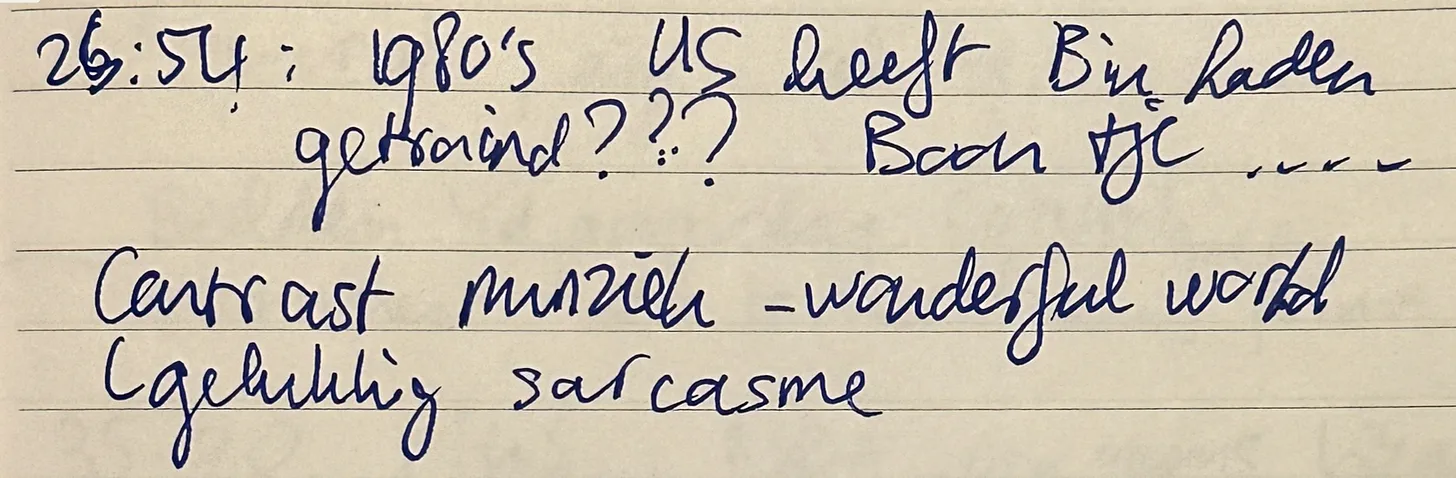 26:54: 1980's US heeft Bin Laden
getraind??? Boontje ....
Contrast muziek - wonderful world
(gelukkig sarcasme